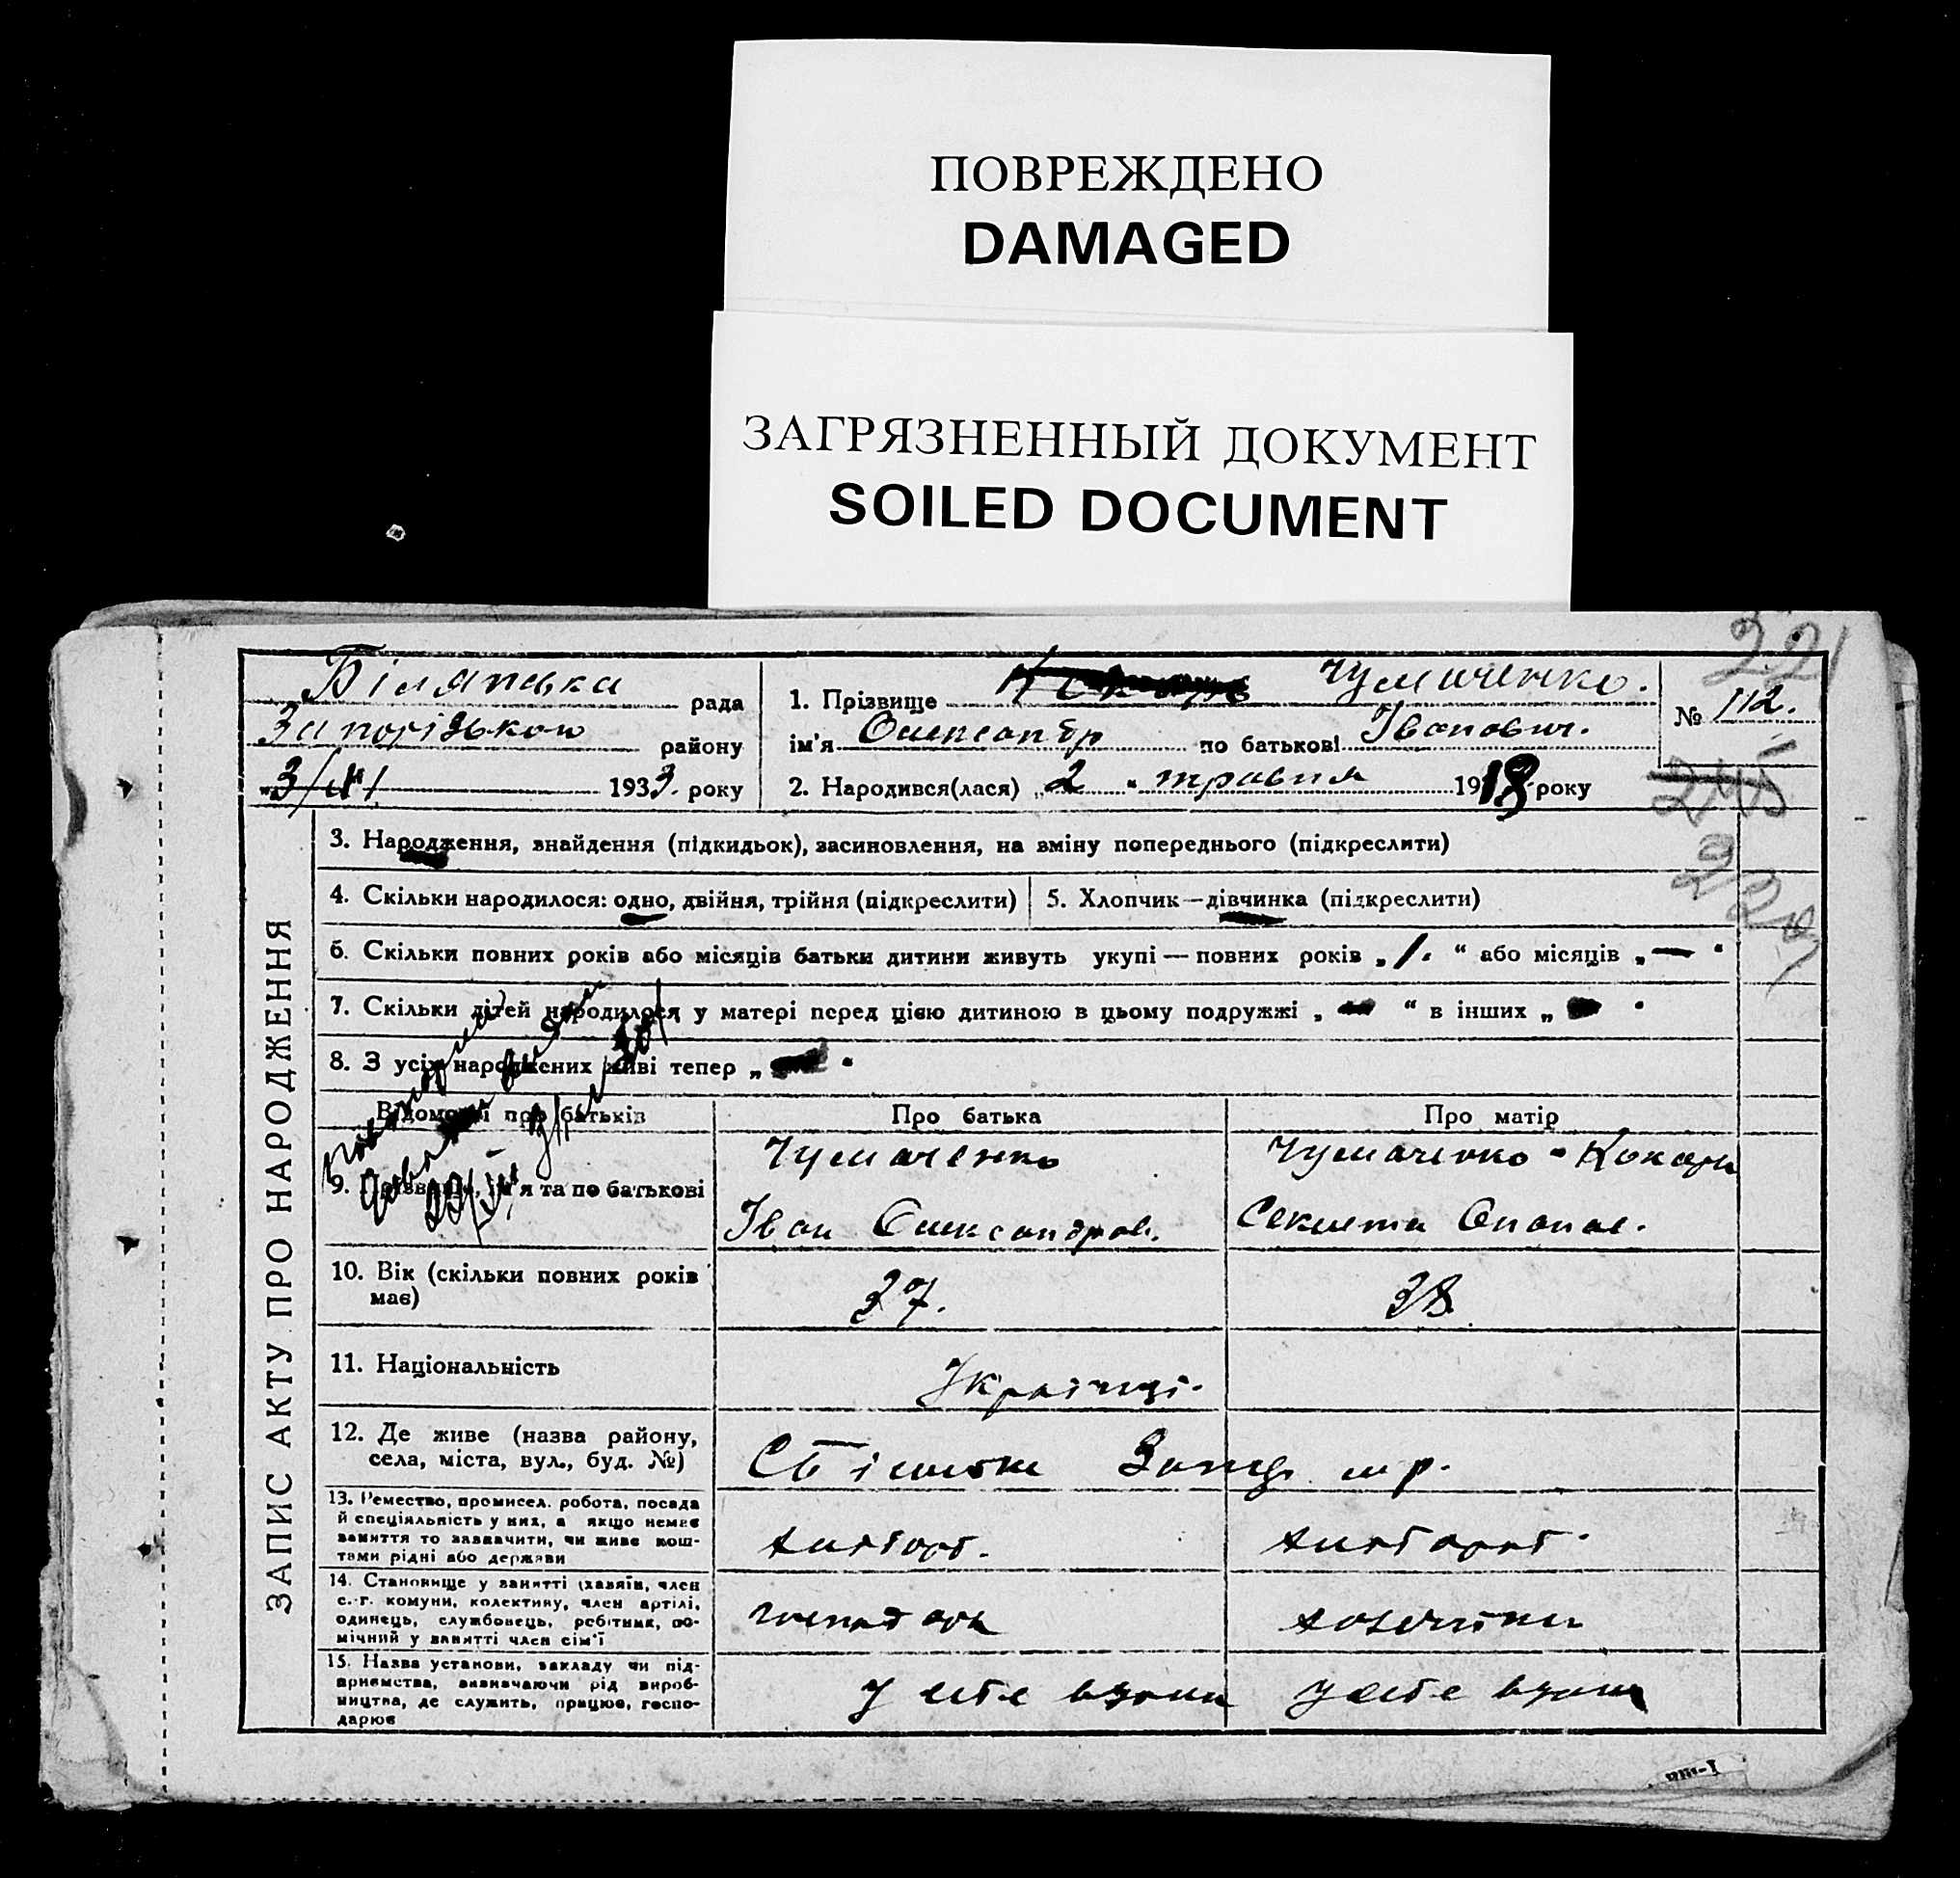 ПОВРЕЖДЕНО
DAMAGED
ЗАГРЯЗНЕННЫЙ ДОКУМЕНТ
SOILED DOCUMENT
221
рада
району
3/VI 1933. року
1. Прізвище Чумаченко.
ім'я Олександр по батькові Іванович.
2. Народився(лася) „2“ травня 19 року
№ 112.
245
ЗАПИС АКТУ ПРО НАРОДЖЕННЯ
3. Народження, знайдення (підкидьок), засиновлення, на вміну попереднього (підкреслити)
4. Скільки народилося: одно, двійня, трійня (підкреслити)
5. Хлопчик—дівчинка (підкреслити)
6. Скільки повних років або місяців батьки дитини живуть укупі — повних років „1.“ або місяців „—“
7. Скільки дітей народилося у матері перед цією дитиною в цьому подружжі „ “ в інших „ “
8. З усіх народжених живі тепер „ “
Відомості про батьків
Про батька
Про матір
9. Прізвище, ім'я та по батькові
Чумаченко
Іван Олександров.
Чумаченко - Кокарь
10. Вік (скільки повних років має)
37.
38.
11. Національність
Українці.
12. Де живе (назва району,
села, міста, вул., буд. №)
13. Ремество, промисел. робота, посада
й спеціяльність у них, а якщо немає
заняття то зазначити, чи живе кош-
тами рідні або держави
хлібороб.
хлібороб.
14. Становище у занятті (хазяїн, член
с.-г. комуни, колективу, член артілі,
одинець, службовець, робітник, по-
мічний у занятті член сім'ї
господарь
15. Назва установи, закладу чи під-
приємства, визначаючи рід вироб-
ництва, де служить, працює, госпо-
дарює
у себе вдома
у себе вдома